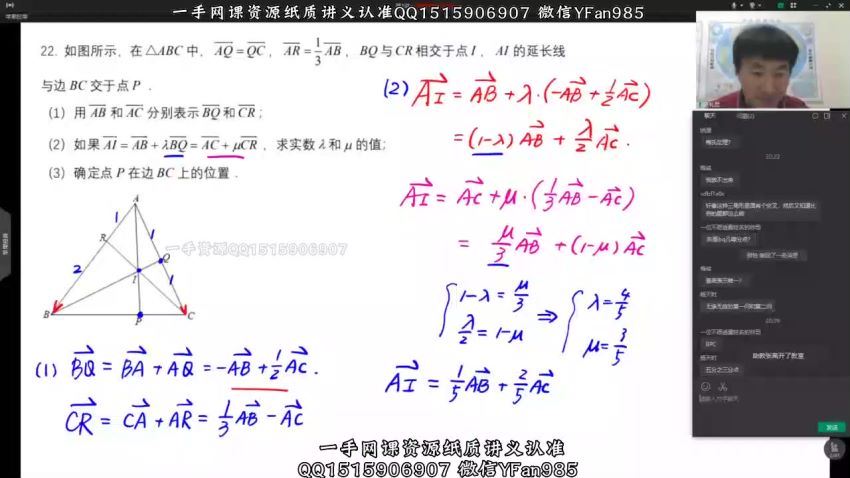 一手网课资源纸质讲义认准QQ1515906907 微信YFan985
22. 如图所示，在 △ABC 中，AQ = QC，AR = 1/3 AB，BQ 与 CR 相交于点 I，AI 的延长线
与边 BC 交于点 P．
(1) 用 AB 和 AC 分别表示 BQ 和 CR；
(2) 如果 AI = AB + λBQ = AC + μCR，求实数 λ 和 μ 的值；
(3) 确定点 P 在边 BC 上的位置．
A
1
R
1
2
Q
I
1
B
P
C
一手资源QQ1515906907
(1) BQ = BA + AQ = -AB + 1/2 AC.
CR = CA + AR = 1/3 AB - AC
(2) AI = AB + λ·(-AB + 1/2 AC)
= (1-λ)AB + λ/2 AC.
AI = AC + μ·(1/3 AB - AC)
= μ/3 AB + (1-μ)AC
{ 1-λ = μ/3
λ/2 = 1-μ
⇒ { λ = 4/5
μ = 3/5
AI = 1/5 AB + 2/5 AC
聊天
20:22
20:29
BPC
助教张离开了教室
五分之三分点
发送
一手网课资源纸质讲义认准
QQ1515906907 微信YFan985